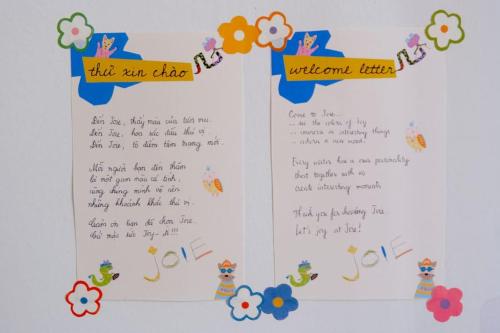 thư xin chào
Đến Joie, thấy màu của niềm vui.
Đến Joie, họa sắc điều thú vị.
Đến Joie, tô điểm tâm trạng mới.
Mỗi người bạn đến thăm
là một gam màu cá tính,
cùng chúng mình vẽ nên
những khoảnh khắc thú vị.
Cảm ơn bạn đã chọn Joie.
Joy - đi!!!
JOIE
welcome letter
Come to Joie...
... see the colors of Joy
... in interesting things
... a new mood.
Every visitor has a own personality
together with us
create interesting moments
Thank you for choosing Joie
Let's joy at Joie!
JOIE